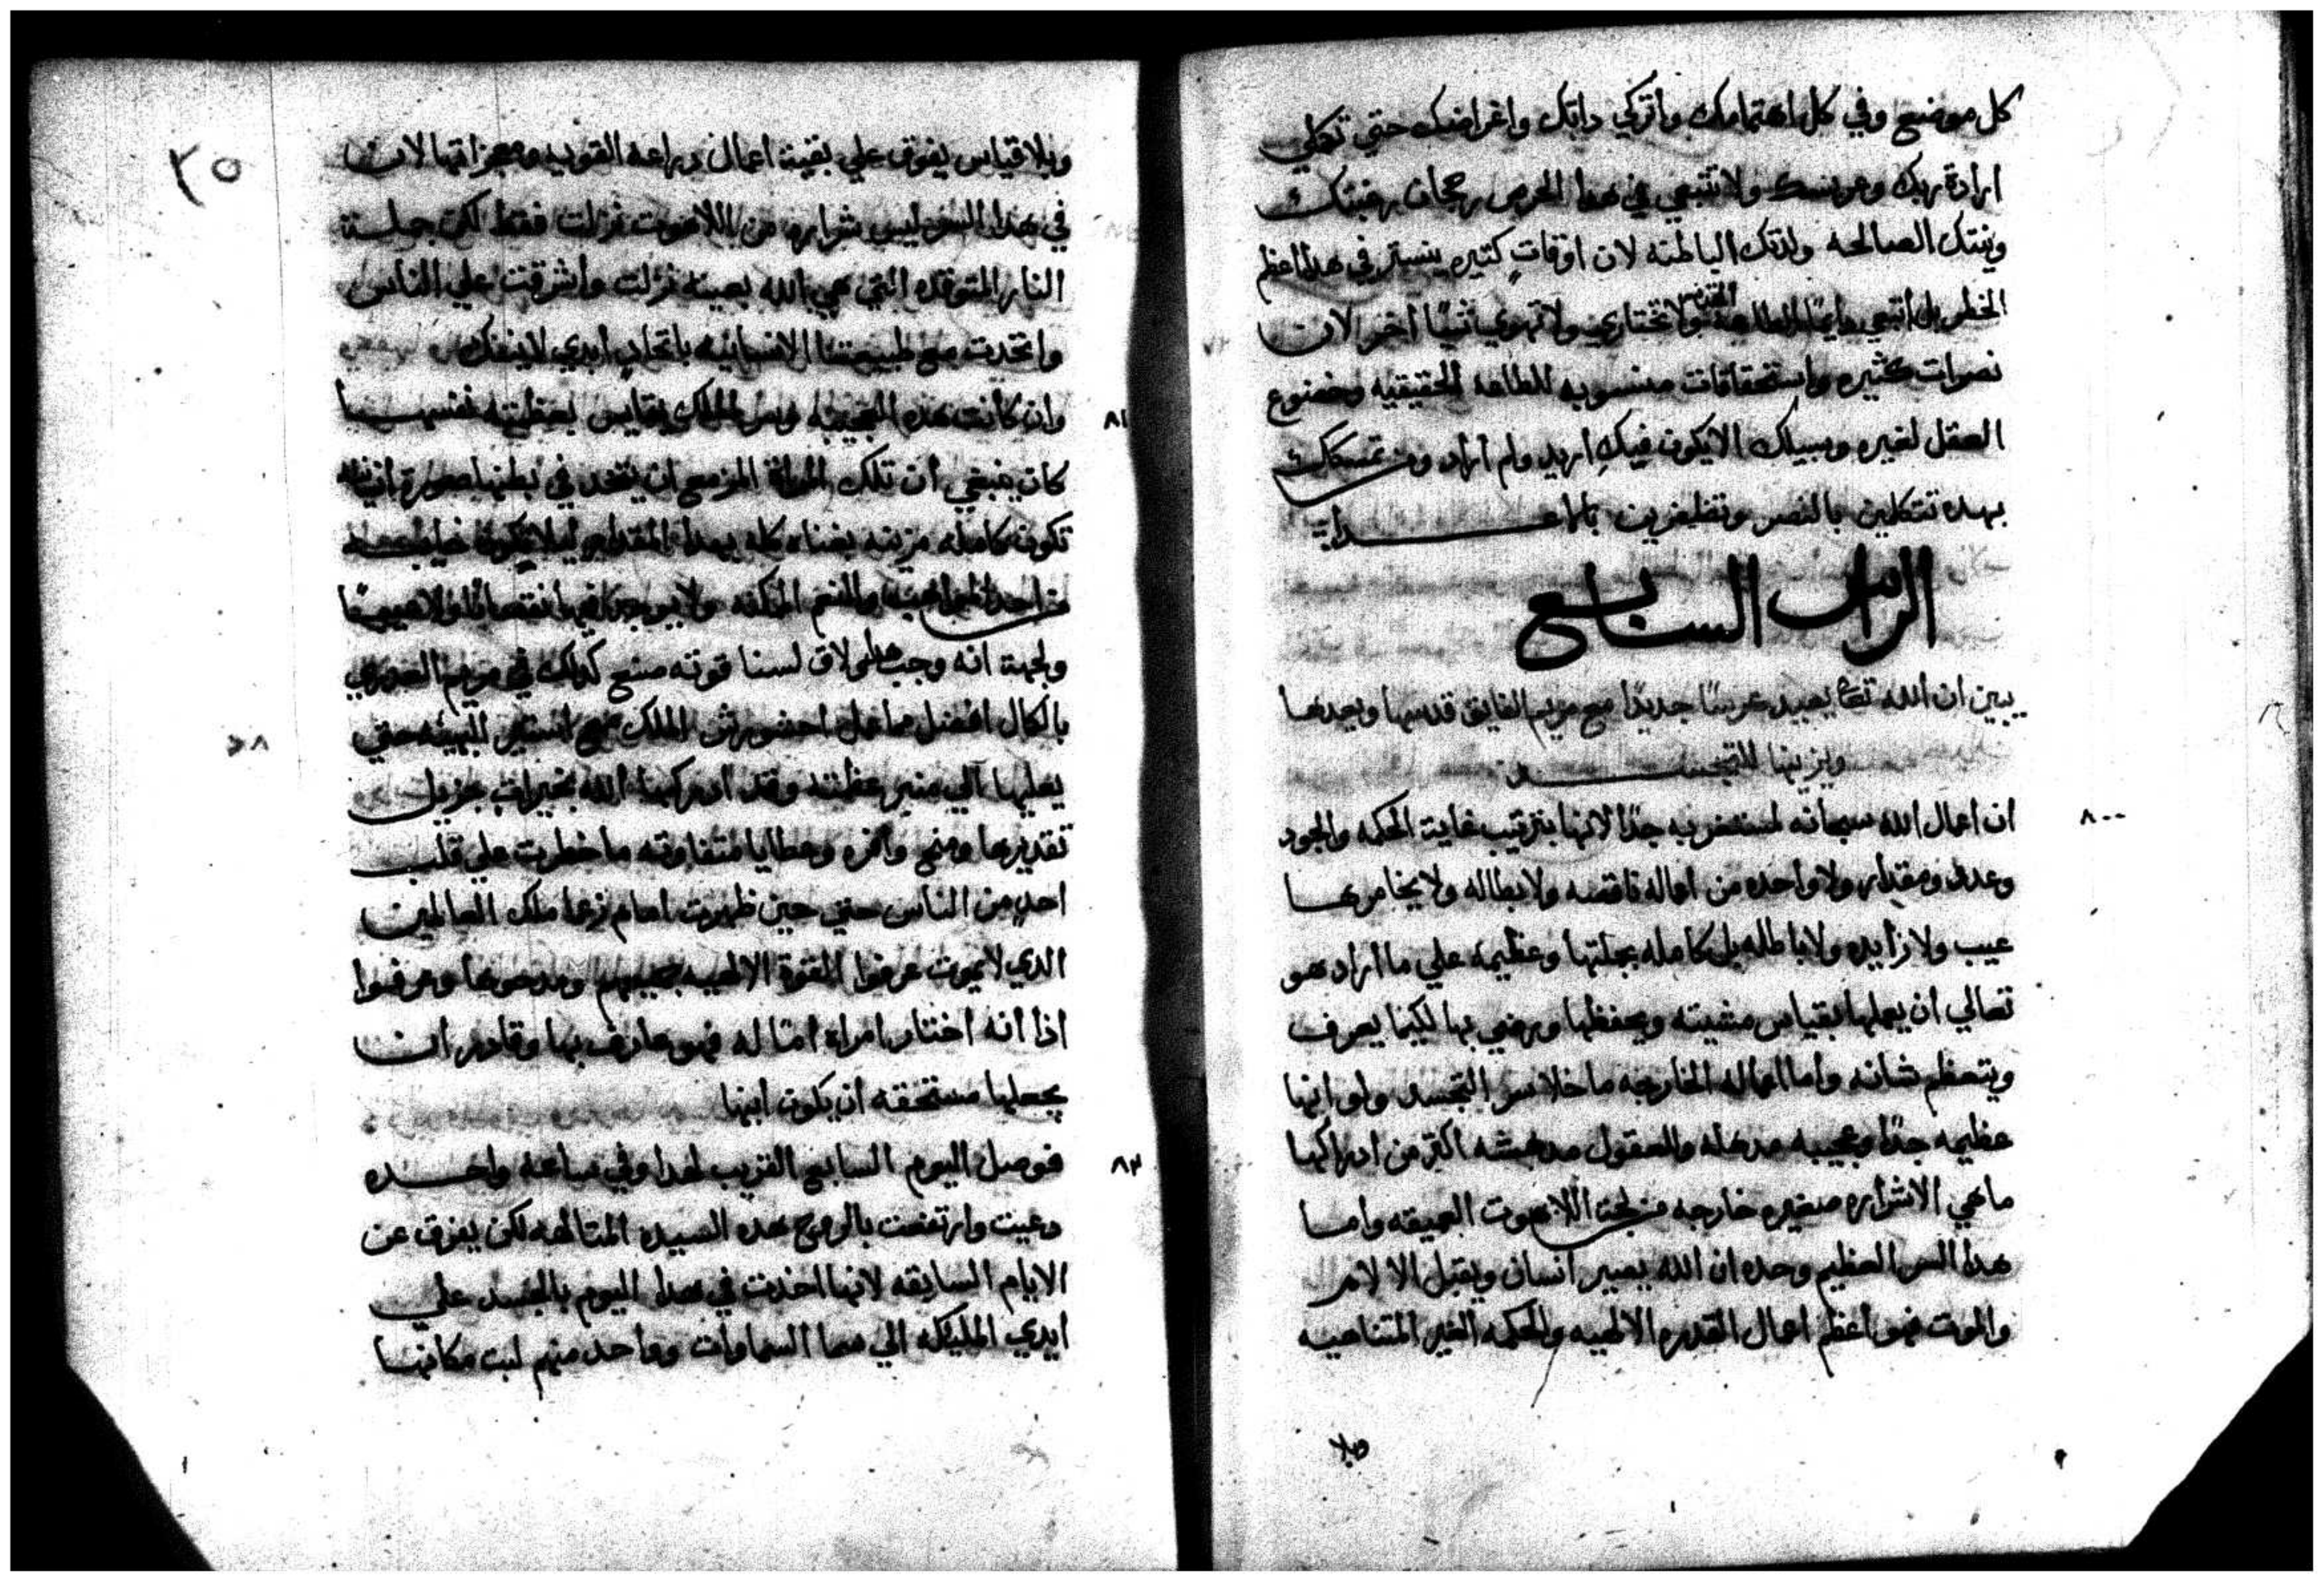 كل موضع وفي كل اهتمامك واتركي داتك واغراضك حتي تكملي
ارادة ربك وعريسك ولا تتبعي في هدا الحرص رجحان رغبتك
ونيتك الصالحه ولدتك الباطنه لان اوقاتٍ كتيره ينستر في هدا اعظم
الخطر بل اتبعي دايمًا الطاعة المقدسه ولا تختاري ولا تهوي شيًا اخر لان
نصرات كثيره واستحقاقات منسوبه للطاعه الحقيقيه وخضوع
العقل لغيره وسبيلك الا يكون فيكِ اريد ولم اراد ومن تمسكك
بهده تتكلين بالنصر وتظفرين بالاعدا
الراس السابع
يبين ان الله تعالى يعيد عرسًا جديدًا مع مريم الفايق قدسها ويعدها
ويزينها للتجسد
٨٠ ان اعمال الله سبحانه لمستغربه جدًا لانها بترتيب غاية الحكمه والجود
وعدد ومقدار ولا واحده من اعماله ناقصه ولا بطاله ولا يخامرها
عيب ولا زايده ولا باطله بل كامله بجملتها وعظيمه علي ما اراد هو
تعالي ان يعملها بقياس مشيته ويحفظها ورضي بها لكيما يعرف
ويتعظم شانه واما اعماله الخارجه ما خلا سر التجسد ولو انها
عظيمه جدًا وعجيبه مدهله والعقول مدهشه اكتر من ادراكها
ما هي الا شراره صغيره خارجه من لجة اللاهوت العميقه واما
هدا السر العظيم وحده ان الله يصير انسان ويقبل الالام
والموت فهو اعظم اعمال القدره الالهيه والحكمه الغير المتناهيه
وبلا
٣٥
وبلا قياس يفوق علي بقية اعمال دراعه القويه ومعجزاتها لان
في هدا السر ليس شراره من اللاهوت نزلت فقط لكن جملة
النار المتوقده التي هي الله بعينه نزلت واشرقت علي الناس
واتحدت مع طبيعتنا الانسانيه باتحادٍ ابدي لا ينفك
٨١ وان كانت هده العجيبه وسر الملك يقايس بعظمته نفسها
كان ينبغي ان تلك المراة المزمع ان يتخد في بطنها صورة انسان
تكون كامله مزينه بغناه كله بهدا المقدار ليلا تكون خايبه
من احد المواهب والنعم الممكنه ولا يوجد فيها نقصانًا ولا عيبًا
وبجهة انه وجب هدا ولاق لسنا قوته صنع كدلك في مريم العدري
بالكمال افضل مما عمل احشورش الملك مع استير البهيه حتي
يعليها الي منبر عظمته وقد ادركها الله بخيراتٍ جزيل
تقديرها ومنح وافره وعطايا متفاوته ما خطرت علي قلب
احد من الناس حتي حين ظهرت امام زعما ملك العالمين
الدي لا يموت عرفوا القوة الالهيه جميعهم ومدحوها وعرفوا
ادا انه اختار امراة امًا له فهو عارف بها وقادر ان
يجعلها مستحقه ان يكون ابنها
٨٢ فوصل اليوم السابع القريب لهدا وفي ساعه واحده
دعيت وارتفعت بالروح هده السيده المتالهه لكن بفرق عن
الايام السابقه لانها اخدت في هدا اليوم بالجسد علي
ايدي المليكه الي سما السماوات وواحد منهم لبت مكانها